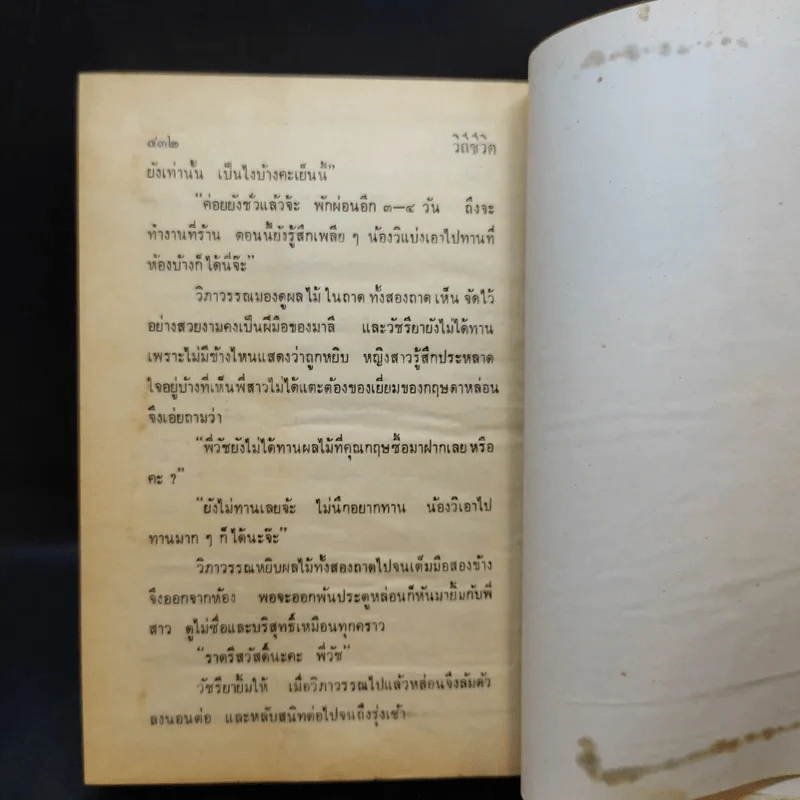 ๔๓๒ วิถีชีวิต
ยังเท่านั้น เป็นไงบ้างคะเย็นนี้”
“ค่อยยังชั่วแล้วจ้ะ พักผ่อนอีก ๓—๔ วัน ถึงจะ
ทำงานที่ร้าน ตอนนี้ยังรู้สึกเพลีย ๆ น้องวิแบ่งเอาไปทานที่
ห้องบ้างก็ได้นี่จ๊ะ”
วิภาวรรณมองดูผลไม้ในถาด ทั้งสองถาด เห็น จัดไว้
อย่างสวยงามคงเป็นฝีมือของมาลี และวัชรียายังไม่ได้ทาน
เพราะไม่มีข้างไหนแสดงว่าถูกหยิบ หญิงสาวรู้สึกประหลาด
ใจอยู่บ้างที่เห็นพี่สาวไม่ได้แตะต้องของเยี่ยมของกฤษดาหล่อน
จึงเอ่ยถามว่า
“พี่วัชยังไม่ได้ทานผลไม้ที่คุณกฤษซื้อมาฝากเลย หรือ
คะ ?”
“ยังไม่ทานเลยจ้ะ ไม่นึกอยากทาน น้องวิเอาไป
ทานมาก ๆ ก็ได้นะจ๊ะ”
วิภาวรรณหยิบผลไม้ทั้งสองถาดไปจนเต็มมือสองข้าง
จึงออกจากห้อง พอจะออกพ้นประตูหล่อนก็หันมายิ้มกับพี่
สาว ดูไม่ซื่อและบริสุทธิ์เหมือนทุกคราว
“ราตรีสวัสดิ์นะคะ พี่วัช”
วัชรียายิ้มให้ เมื่อวิภาวรรณไปแล้วหล่อนจึงล้มตัว
ลงนอนต่อ และหลับสนิทต่อไปจนถึงรุ่งเช้า